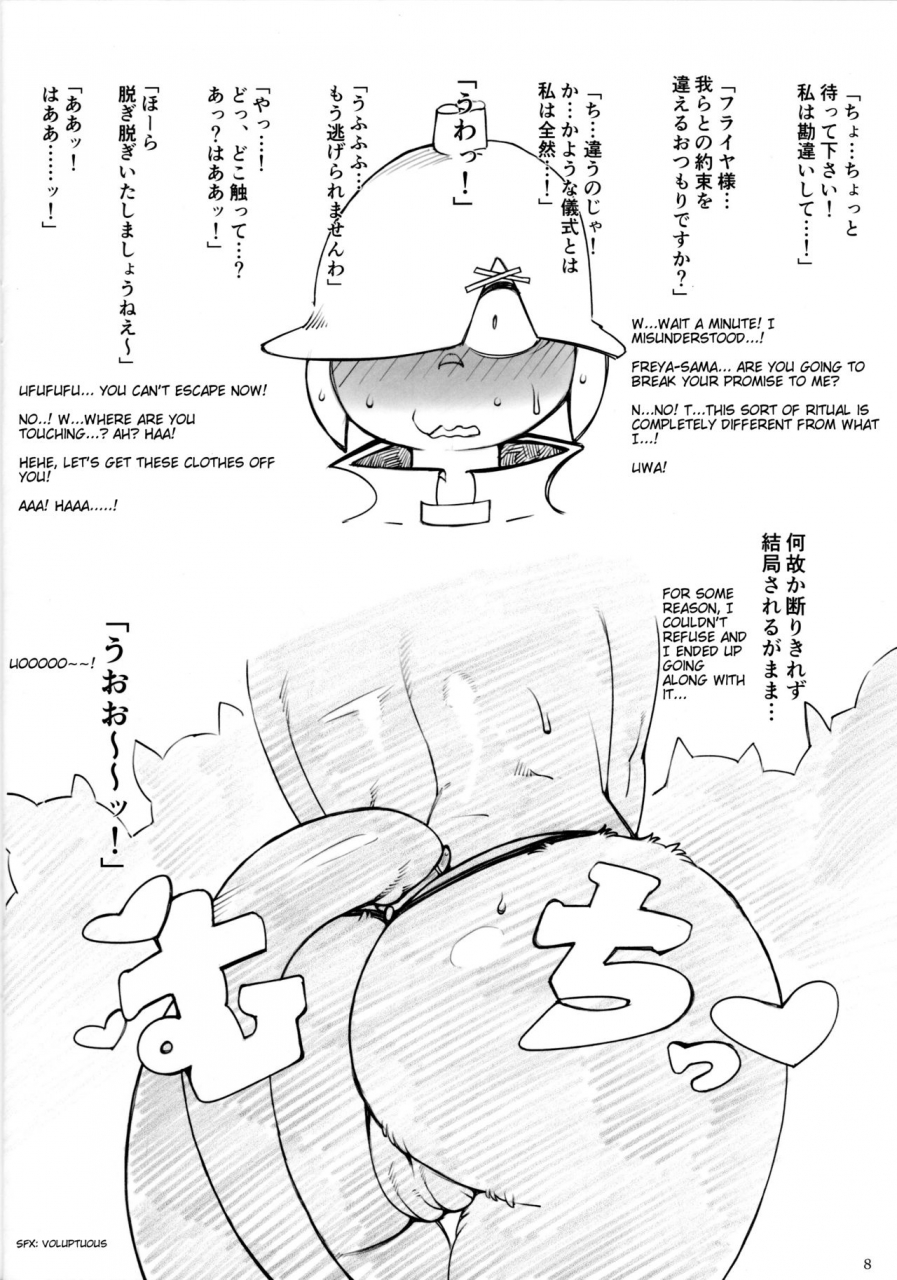 「ちょ…ちょっと
待って下さい！
私は勘違いして…！」
「フライヤ様…
我らとの約束を
違えるおつもりですか？」
「ち…違うのじゃ！
か…かような儀式とは
私は全然…！」
「うわっ！」
「うふふふ…
もう逃げられませんわ」
「やっ…！
どっ、どこ触って…？
あっ？はああッ！」
「ほーら
脱ぎ脱ぎいたしましょうねえ～」
「ああッ！
はああ……ッ！」
W...WAIT A MINUTE! I
MISUNDERSTOOD...!
FREYA-SAMA... ARE YOU GOING TO
BREAK YOUR PROMISE TO ME?
N...NO! T...THIS SORT OF RITUAL IS
COMPLETELY DIFFERENT FROM WHAT
I...!
UWA!
UFUFUFU... YOU CAN'T ESCAPE NOW!
NO..! W...WHERE ARE YOU
TOUCHING...? AH? HAA!
HEHE, LET'S GET THESE CLOTHES OFF
YOU!
AAA! HAAA.....!
何故か断りきれず
結局されるがまま…
FOR SOME
REASON, I
COULDN'T
REFUSE AND
I ENDED UP
GOING
ALONG WITH
IT...
「うおお～～ッ！」
UOOOOO~~!
むちっ
SFX: VOLUPTUOUS
8